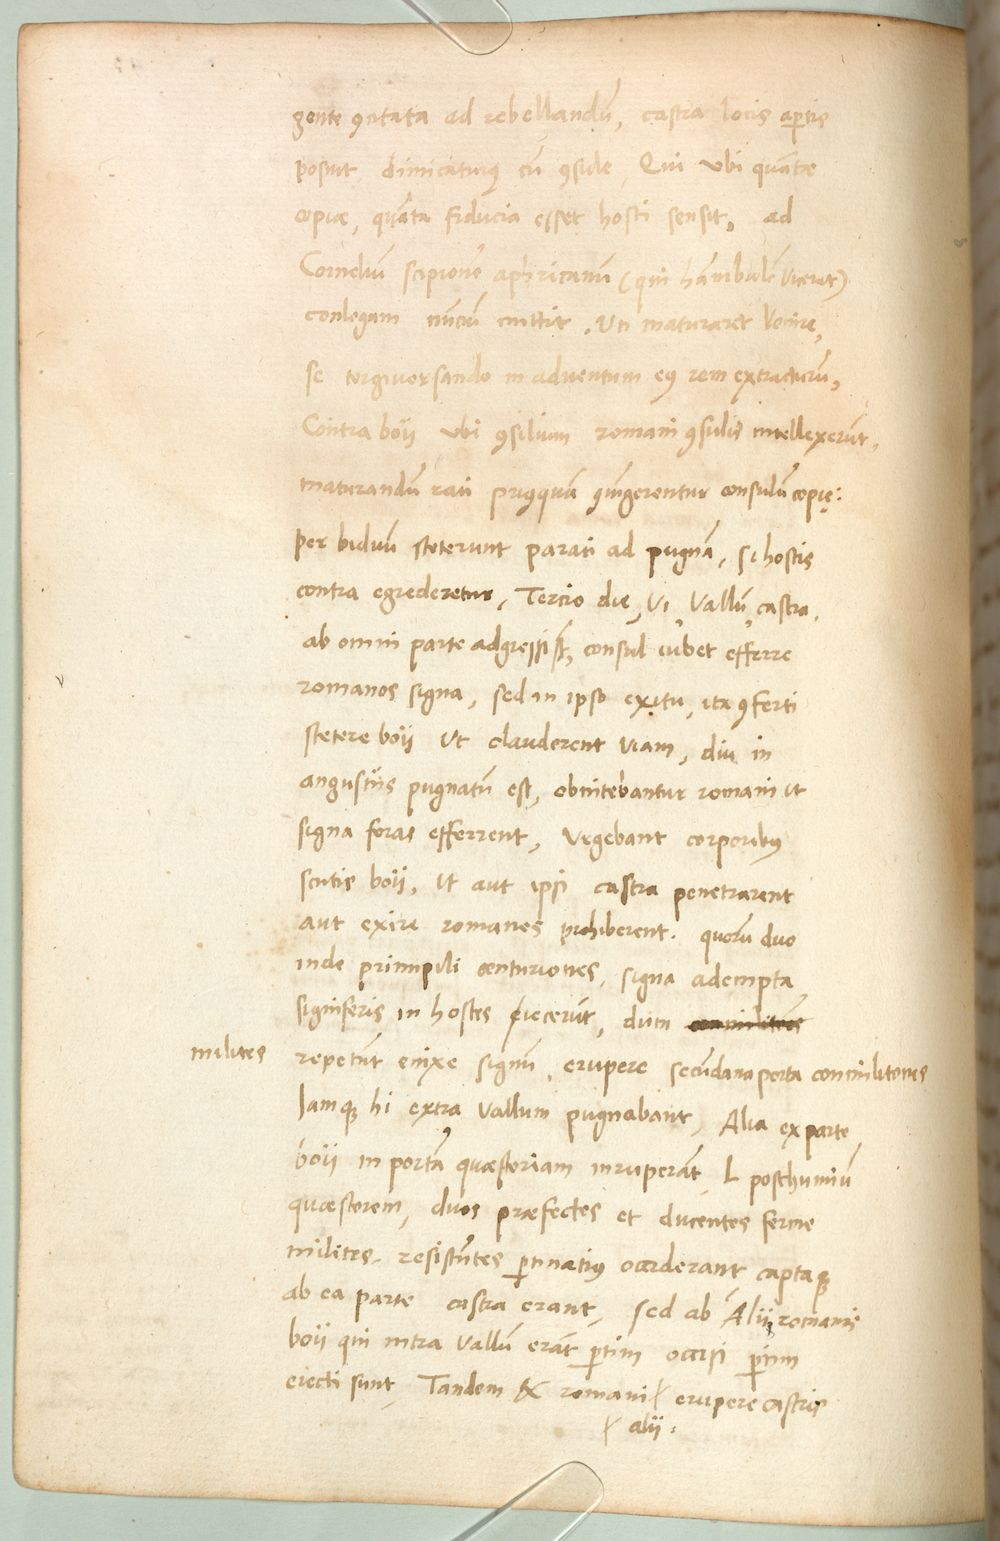 gente ꝯcitata ad rebellandū, castra locis aꝑtis
posuit dimicaturꝰ cū ꝯsule, Qui ubi quātæ
copiæ, quāta fiducia esset hosti sensit, ad
Corneliū scipionē aphricanū (qui hānibalē vicerat)
conlegam nūciū mittit. Uti maturaret venire,
se tergiversando in adventum eꝰ rem extracturū,
Contra boij ubi ꝯsilium romani ꝯsulis intellexerūt,
maturandū rati priꝰquā ꝯiūgerentur consulū copię:
per biduū steterunt parati ad pugnā, si hostis
contra egrederetur, Tercio die, Ut, Vallū, castra,
ab omni parte adgressi sūt, consul iubet efferre
romanos signa, sed in ipso exitu, ita ꝯferti
stetere boij ut clauderent viam, diu in
angustijs pugnatū est, obnitebantur romani ut
signa foras efferrent, Urgebant corporibꝰ
scutis boij, ut aut ipsi castra penetrarent
aut exire romanos prohiberent. quorū duo
inde primipili centuriones, signa adempta
signiferis in hostes iecerūt, dum
milites repetūt enixe signū, erupere secūdana porta conmilitones
Iamqꝫ hi extra vallum pugnabant, Alia ex parte,
boij in portā quæstoriam inruperāt, L posthumiū
quæstorem, duos præfectos et ducentos ferme
milites, resistētes ꝑtinatiꝰ occiderant captaqꝫ
ab ea parte castra erant, sed ab Alijs romanis
boij qui intra vallū erāt ꝑtim occisi ꝑtim
eiecti sunt, Tandem & romani erupere castris
alij.